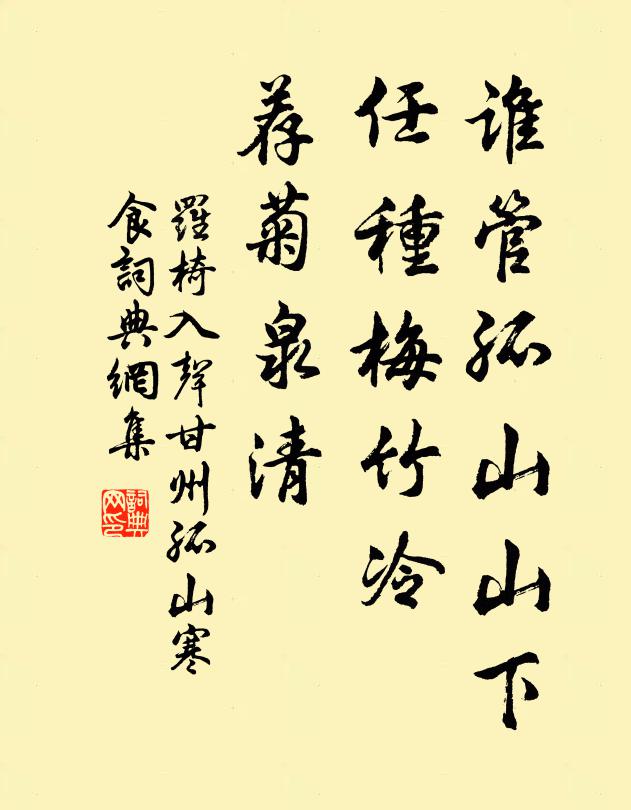 谁管孤山山下
任種梅竹冷
荐菊泉清
羅椅入聲甘州孤山寒
食詞典網集
詞典網印